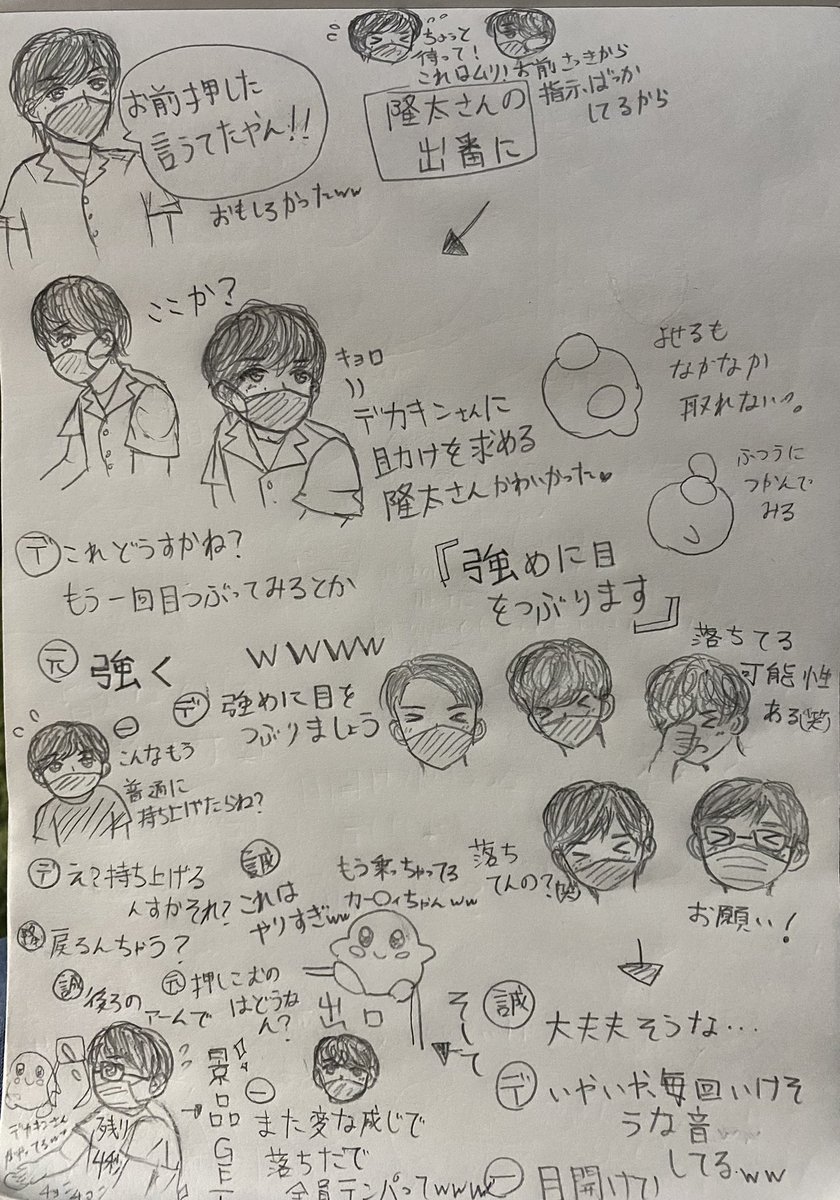 お前押した
言うてたやん!!
おもしろかったww
ちょっと
待って!
これはムリ!
お前さっきから
指示ばっか
してるから
隆太さんの
出番に
ここか?
キョロ
デカキンさんに
助けを求める
隆太さんかわいかった♥
よせるも
なかなか
取れない。
ふつうに
つかんで
みる
デ これどうすかね?
もう一回目つぶってみるとか
『強めに目
をつぶります』
元 強く
wwww
デ 強めに目を
つぶりましょう
落ちてる
可能性
ある(笑)
一 こんなもう
普通に
持ち上げたらね?
デ え?持ち上げる
んすかそれ?
誠 これは
やりすぎww
もう乗っちゃってる
カービィちゃんww
落ち
てんの?(笑)
お願い!
隆 戻るんちゃう?
誠 後ろの
アームで
元 押しこむの
はどうな
ん?
出口
そして
誠 大丈夫そうな…
デ いやいや、毎回いけそ
うな音
してる.ww
景品GET
一 また変な感じで
落ちたで
全員テンパってwww
デカキンさん
残り
4秒
一 目開けてい